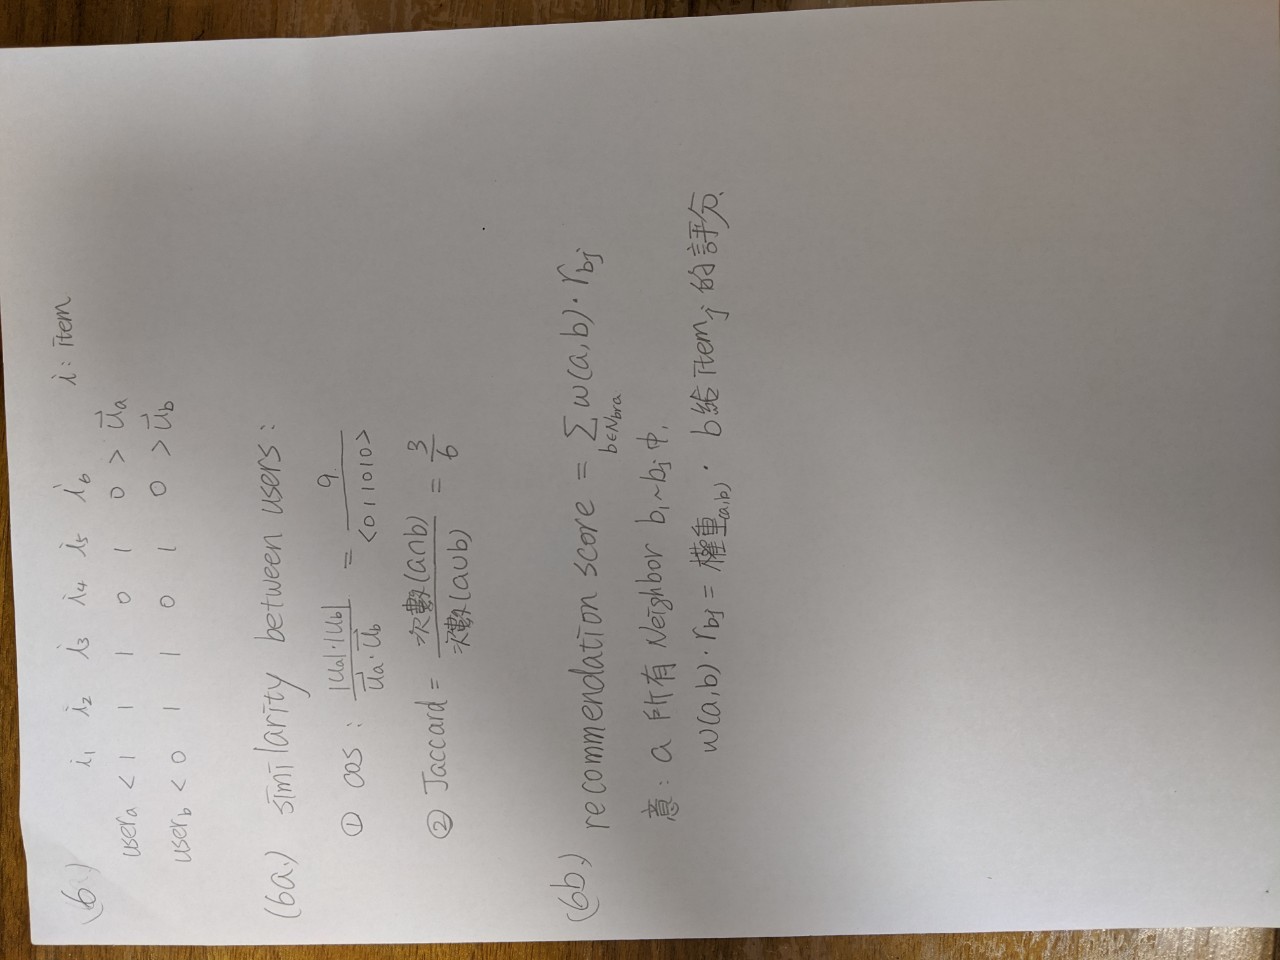 (6.) i₁ i₂ i₃ i₄ i₅ i₆ i: item
userₐ < 1 1 1 0 1 0 > u⃗ₐ
user_b < 0 1 1 0 1 0 > u⃗_b
(6a.) similarity between users:
① cos: |uₐ|·|u_b| / u⃗ₐ·u⃗_b = 9 / <011010>
② Jaccard = 次數(a∩b) / 次數(a∪b) = 3/6
(6b.) recommendation score = Σ_{b∈N_bra} w(a,b)·r_bj
意: a 所有 Neighbor b₁~bⱼ中,
w(a,b)·r_bj = 權重_(a,b)· b給 itemⱼ 的評分